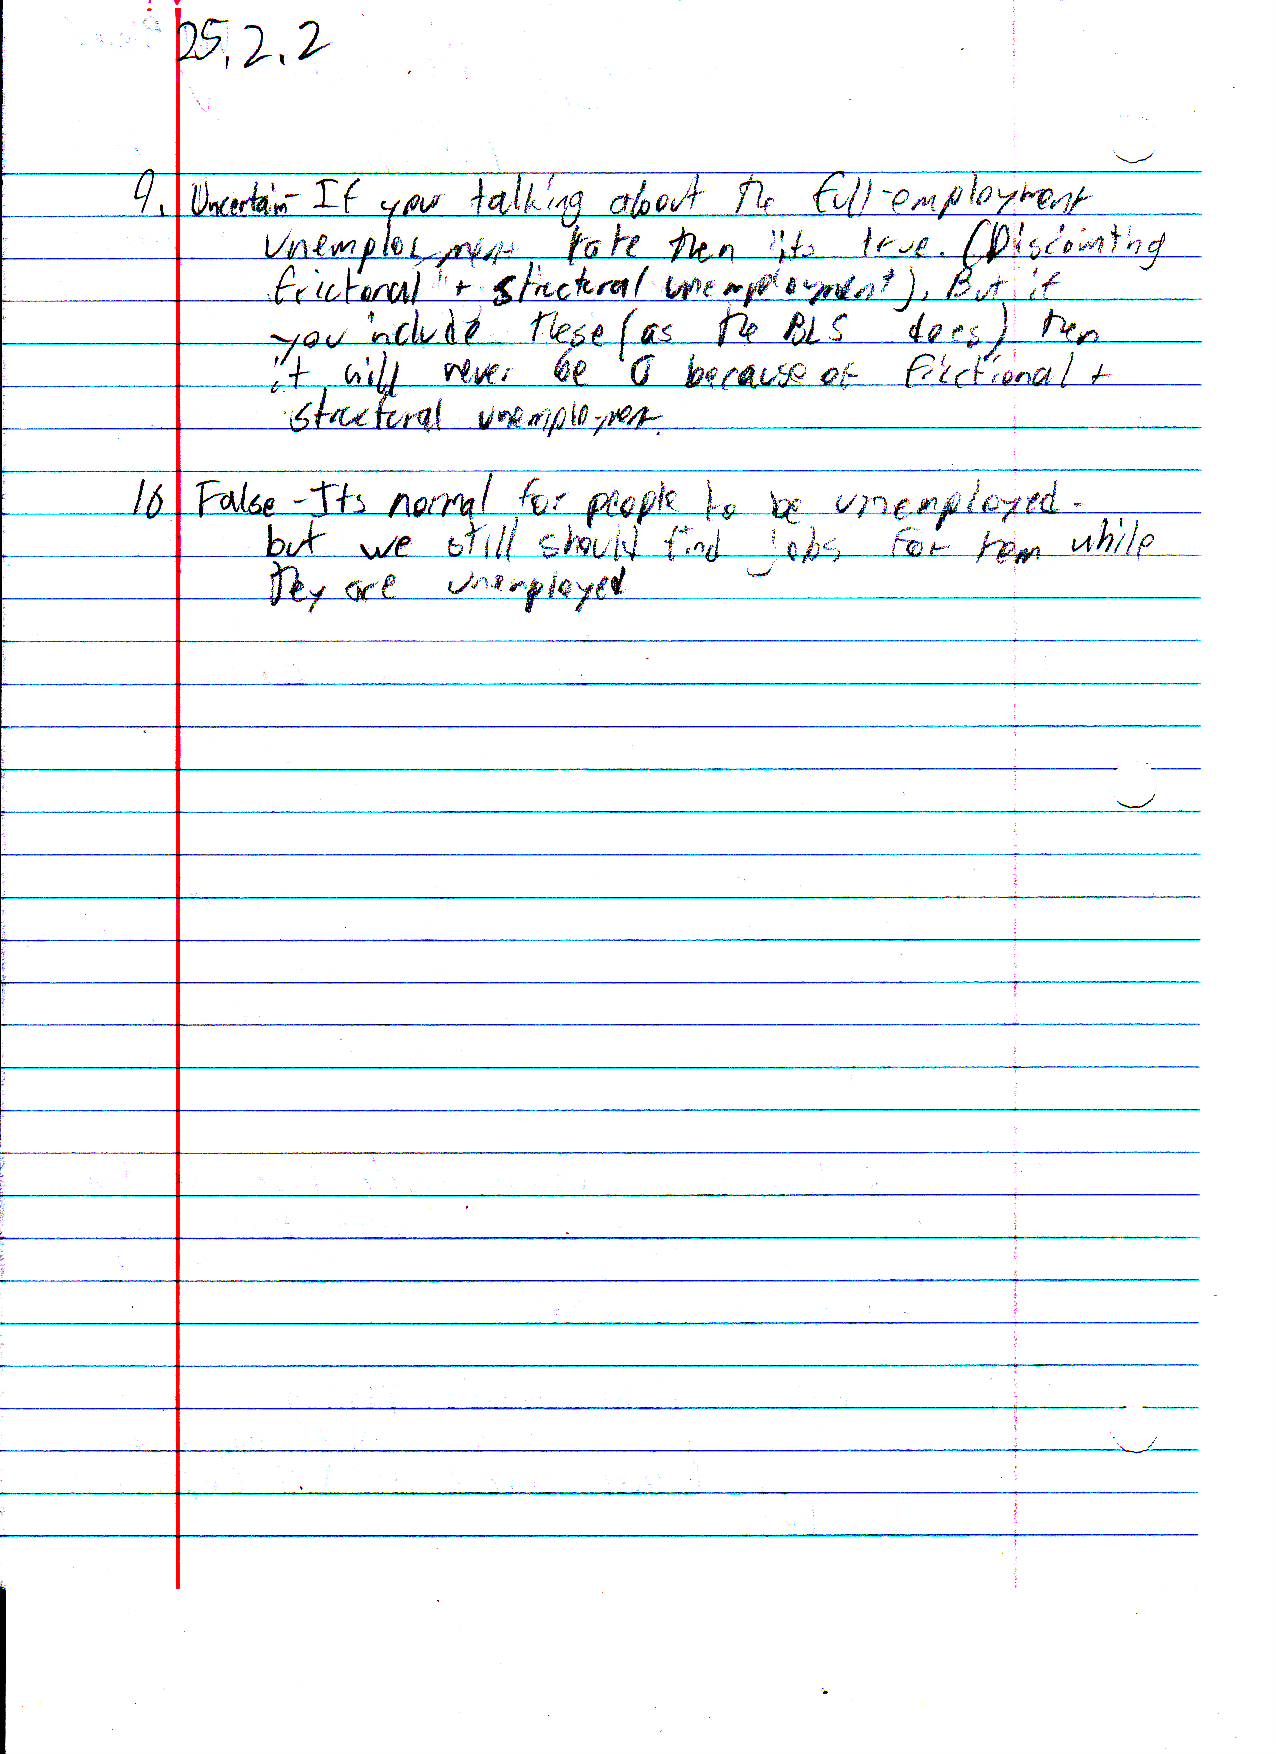 25.2.2
9. Uncertain - If your talking about the full-employment
unemployment rate then its true. (Discounting
frictonal + structural unemployment). But if
you include these (as the BLS does) then
it will never be 0 because of frictional +
structural unemployment.
10 False - Its normal for people to be unemployed -
but we still should find jobs for tem while
they are unemployed